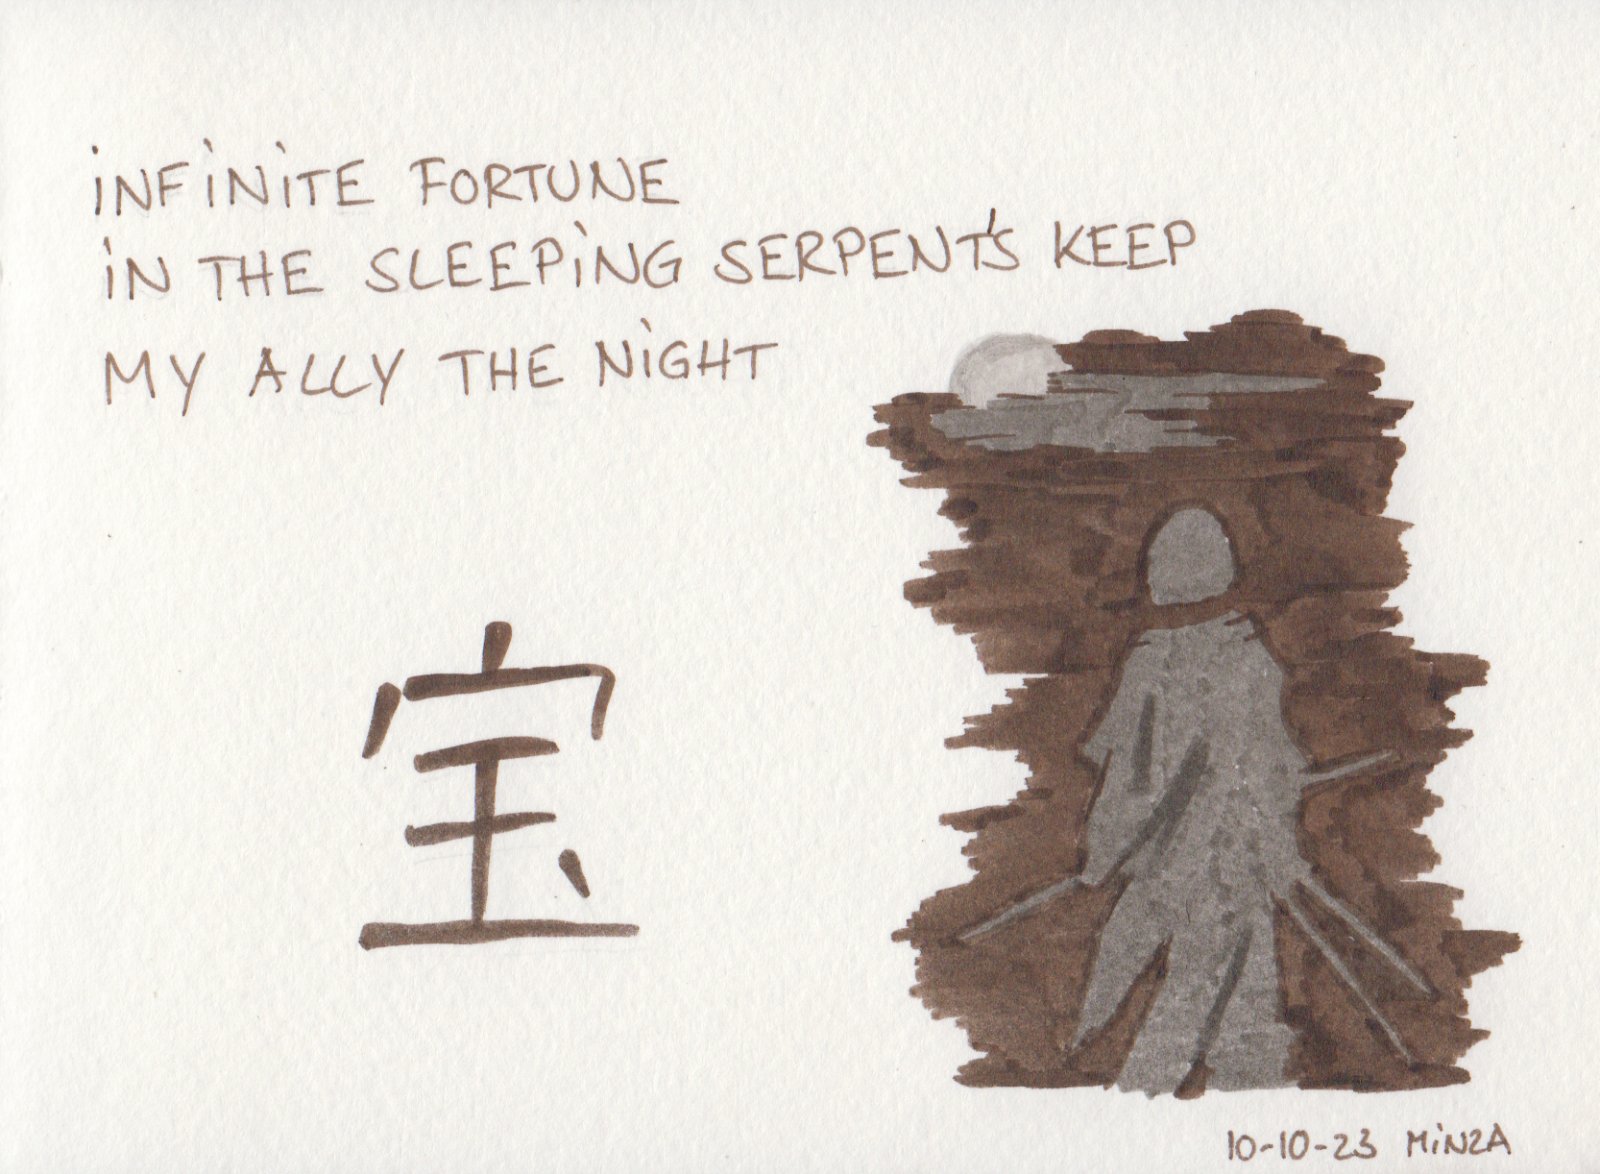 INFINITE FORTUNE
IN THE SLEEPING SERPENT'S KEEP
MY ALLY THE NIGHT
宝
10-10-23 MINZA